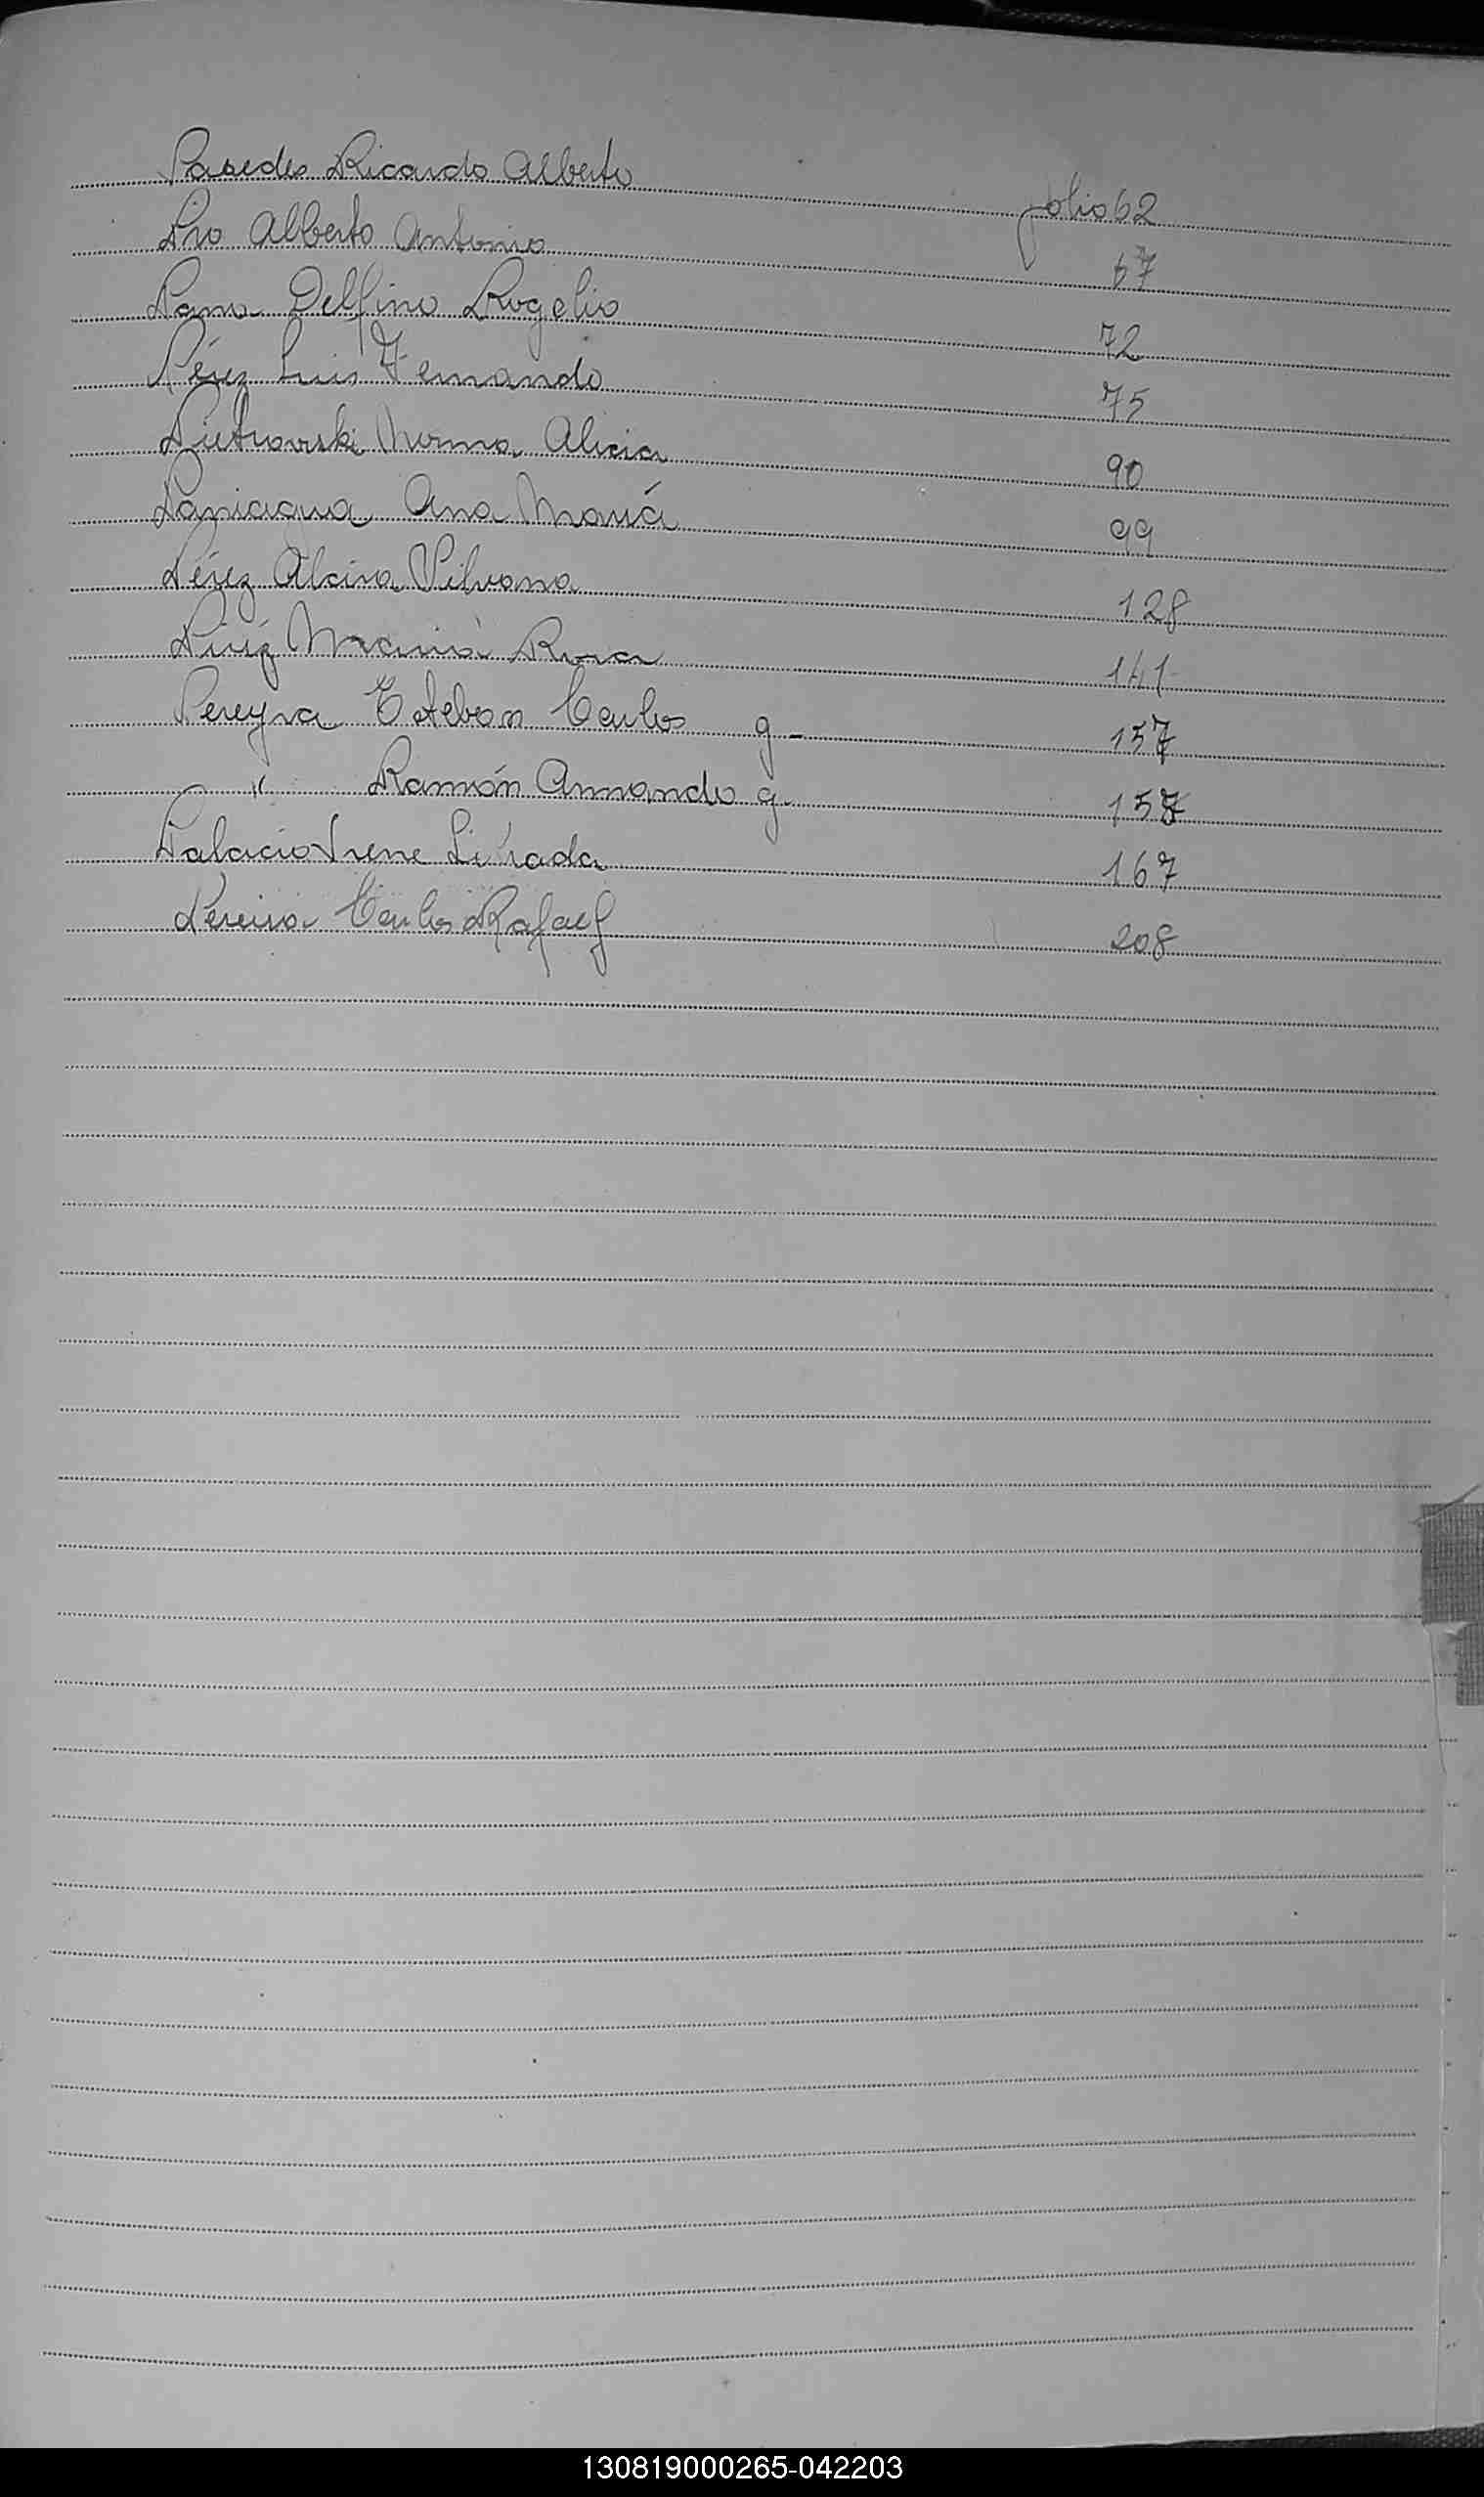 Paredes Ricardo Alberto folio 62
Pio Alberto Antonio 67
Parra Delfino Rogelio 72
Pérez Luis Fernando 75
Pietrowski Norma Alicia 90
Paniagua Ana María 99
Pérez Alcira Silvana 128
María Rosa 141
Pereyra Esteban Carlos g- 157
" Ramón Armando g. 158
Palacio Irene Librada 167
Pereira Carlos Rafael 208
130819000265-042203